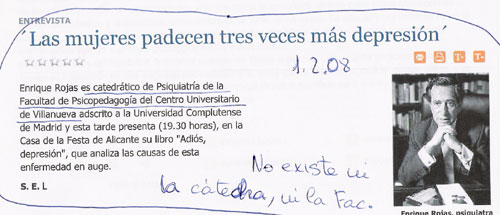 ENTREVISTA
´Las mujeres padecen tres veces más depresión´
1.2.08
T+ T-
Enrique Rojas es catedrático de Psiquiatría de la
Facultad de Psicopedagogía del Centro Universitario
de Villanueva adscrito a la Universidad Complutense
de Madrid y esta tarde presenta (19.30 horas), en la
Casa de la Festa de Alicante su libro "Adiós,
depresión", que analiza las causas de esta
enfermedad en auge.
No existe ni
la cátedra, ni la Fac.
S. E. L
Enrique Rojas, psiquiatra